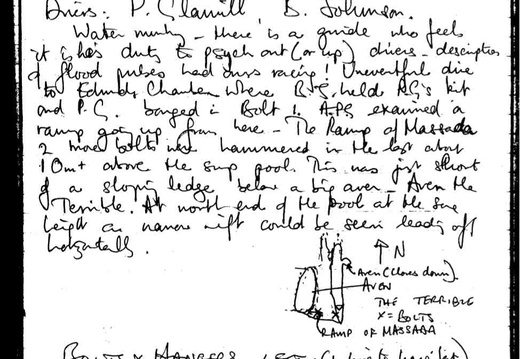 Divers: P. Glanvill, B. Johnson.
Water murky – there is a guide who feels
it is his duty to psych out (or up) divers – description
of flood pulses had ours racing! Uneventful dive
to Edmunds Chamber where B.J. held P.G's kit
and P.G. banged in Bolt 1. APG examined a
ramp going up from here – The Ramp of Massada
2 more bolts were hammered in the last about
10m+ above the sump pool. This was just short
of a sloping ledge below a big aven – Aven the
Terrible. At north end of the pool at the same
height a narrow rift could be seen leading off
horizontally.
↑ N
Aven (closes down).
AVEN
THE TERRIBLE
X = BOLTS
RAMP OF MASSADA
BOLTS & HANGERS LEFT